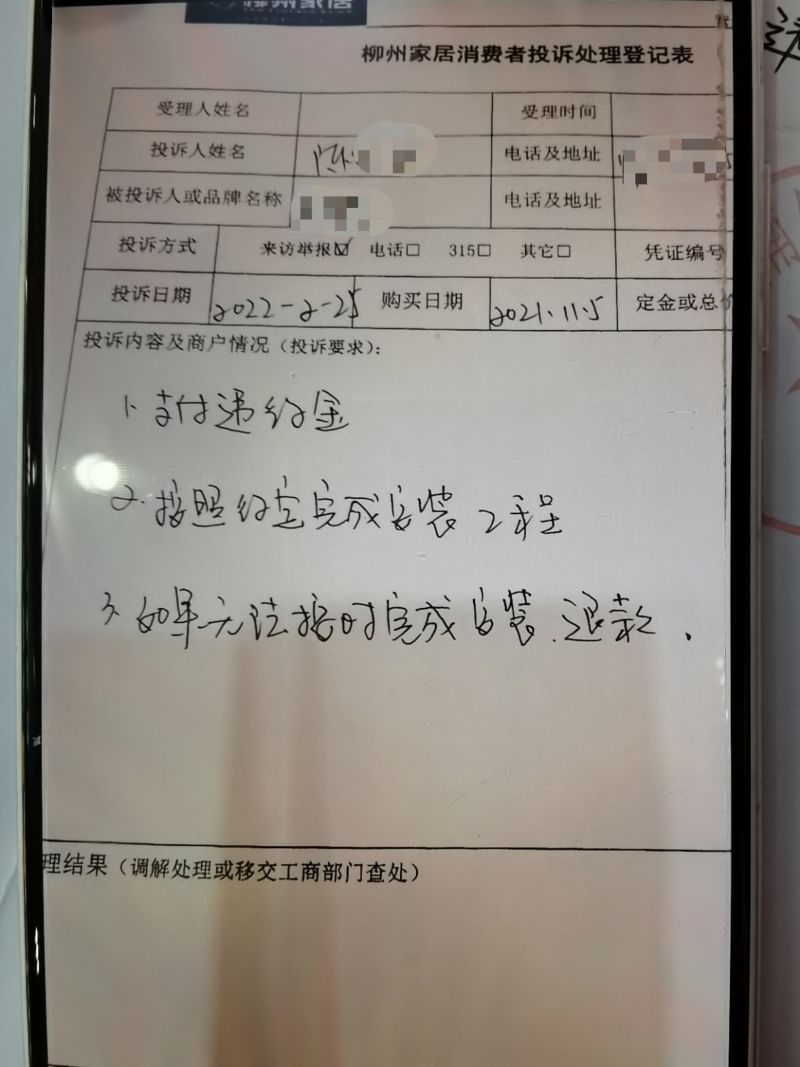 柳州家居
柳州家居消费者投诉处理登记表
受理人姓名 受理时间
投诉人姓名 陈 电话及地址
被投诉人或品牌名称 电话及地址
投诉方式 来访举报☑ 电话□ 315□ 其它□ 凭证编号
投诉日期 2022-2-25 购买日期 2021.11.5 定金或总价
投诉内容及商户情况（投诉要求）：
1. 支付违约金
2. 按照约定完成安装工程
3. 如果无法按时完成安装.退款.
理结果（调解处理或移交工商部门查处）